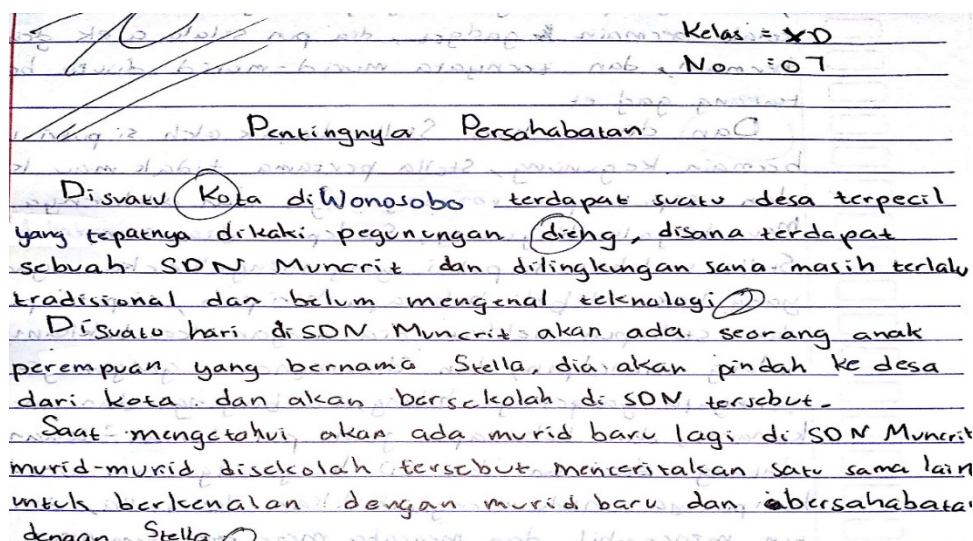 Kelas = XD
No = 07
Pentingnya Persahabatan
Disuatu Kota di Wonosobo terdapat suatu desa terpecil
yang tepatnya dikaki pegunungan dieng, disana terdapat
sebuah SDN Muncrit dan dilingkungan sana masih terlalu
tradisional dan belum mengenal teknologi
Disuatu hari di SDN Muncrit akan ada seorang anak
perempuan yang bernama Stella, dia akan pindah ke desa
dari kota dan akan bersekolah di SDN tersebut.
Saat mengetahui akan ada murid baru lagi di SDN Muncrit
murid-murid disekolah tersebut menceritakan satu sama lain
untuk berkenalan dengan murid baru dan bersahabatan
dengan Stella